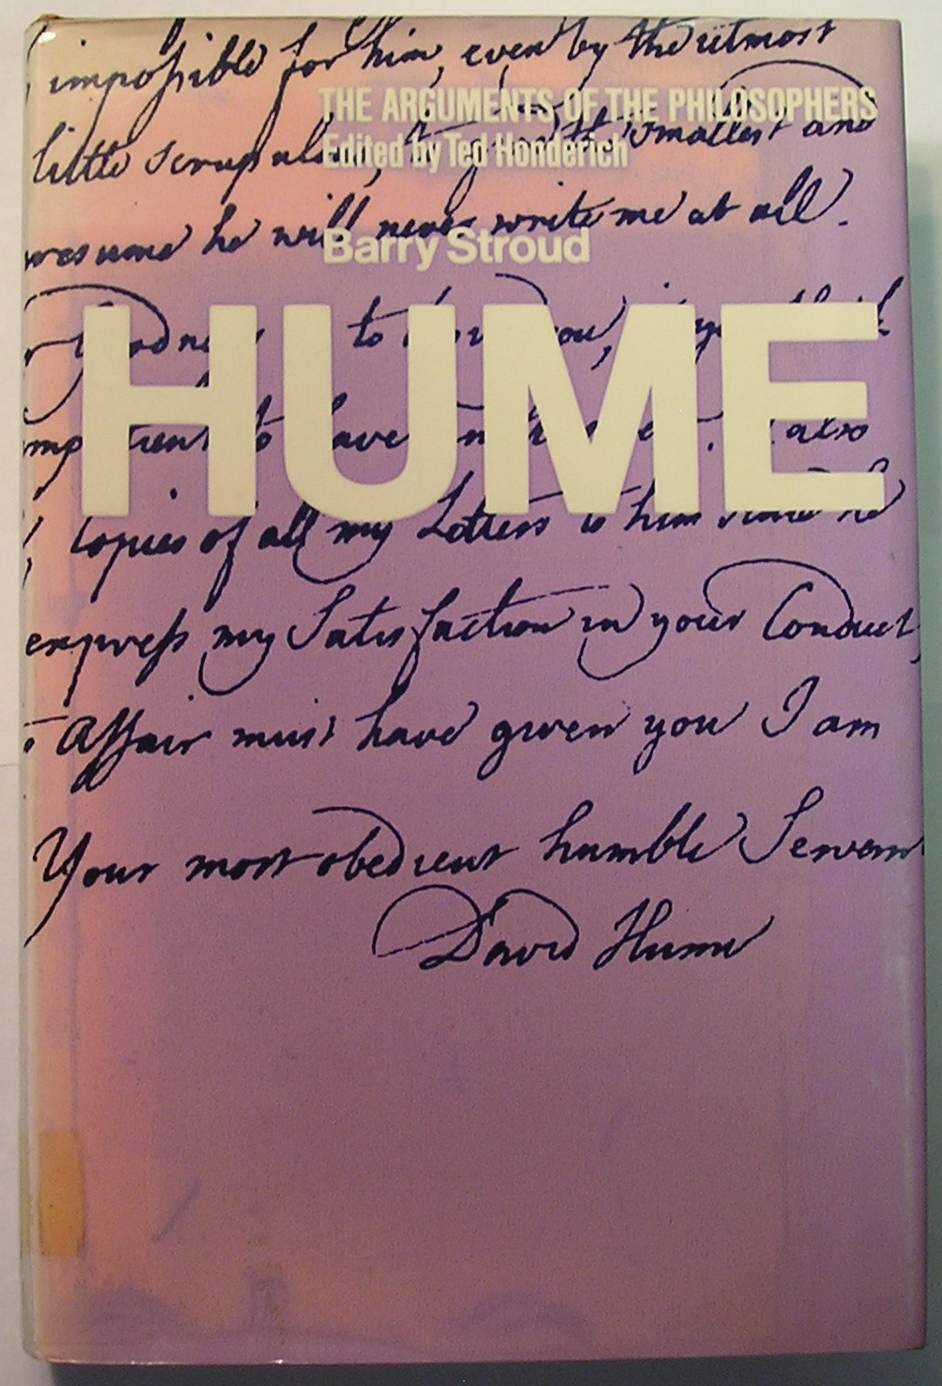 impossible for him, even by the utmost
THE ARGUMENTS OF THE PHILOSOPHERS
little scrup smallest and
Edited by Ted Honderich
he will never write me at all.
Barry Stroud
to
HUME
have also
Copies of all my Letters to him he
express my Satisfaction in your Conduct,
Affair must have given you I am
Your most obedient humble Servant
David Hume